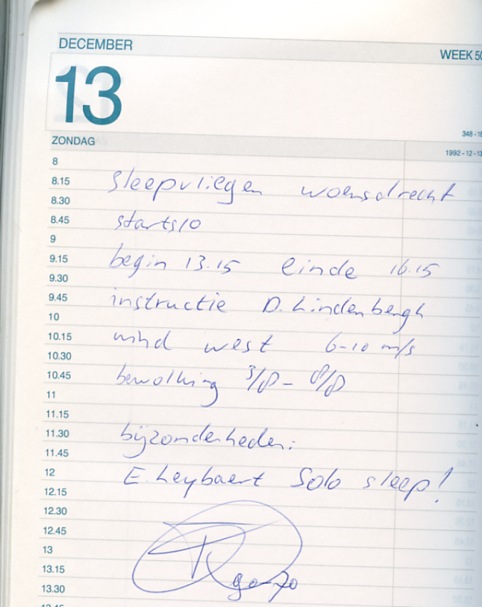 DECEMBER
WEEK 50
13
348-18
ZONDAG
1992-12-13
8
8.15 sleepvliegen woensdrecht
8.30
8.45 starts10
9
9.15 begin 13.15 einde 16.15
9.30
9.45 instructie D. Lindenbergh
10
10.15 wind west 6-10 m/s
10.30
10.45 bewolking 3/8 - 8/8
11
11.15
11.30 bijzonderheden:
11.45
12 E. Leybaert Solo sleep!
12.15
12.30
12.45
13
13.15
13.30